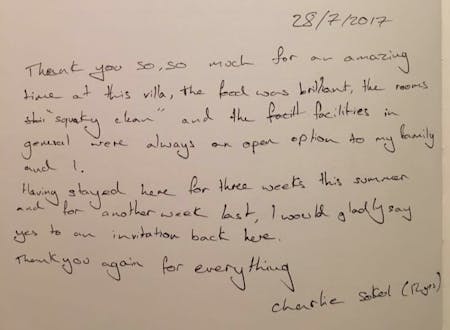 28/7/2017
Thank you so, so much for an amazing
time at this villa, the food was brillant, the rooms
"squeaky clean" and the facili facilities in
general were always an open option to my family
and I.
Having stayed here for three weeks this summer
and for another week last, I would gladly say
yes to an invitation back here.
Thankyou again for everything
Charlie